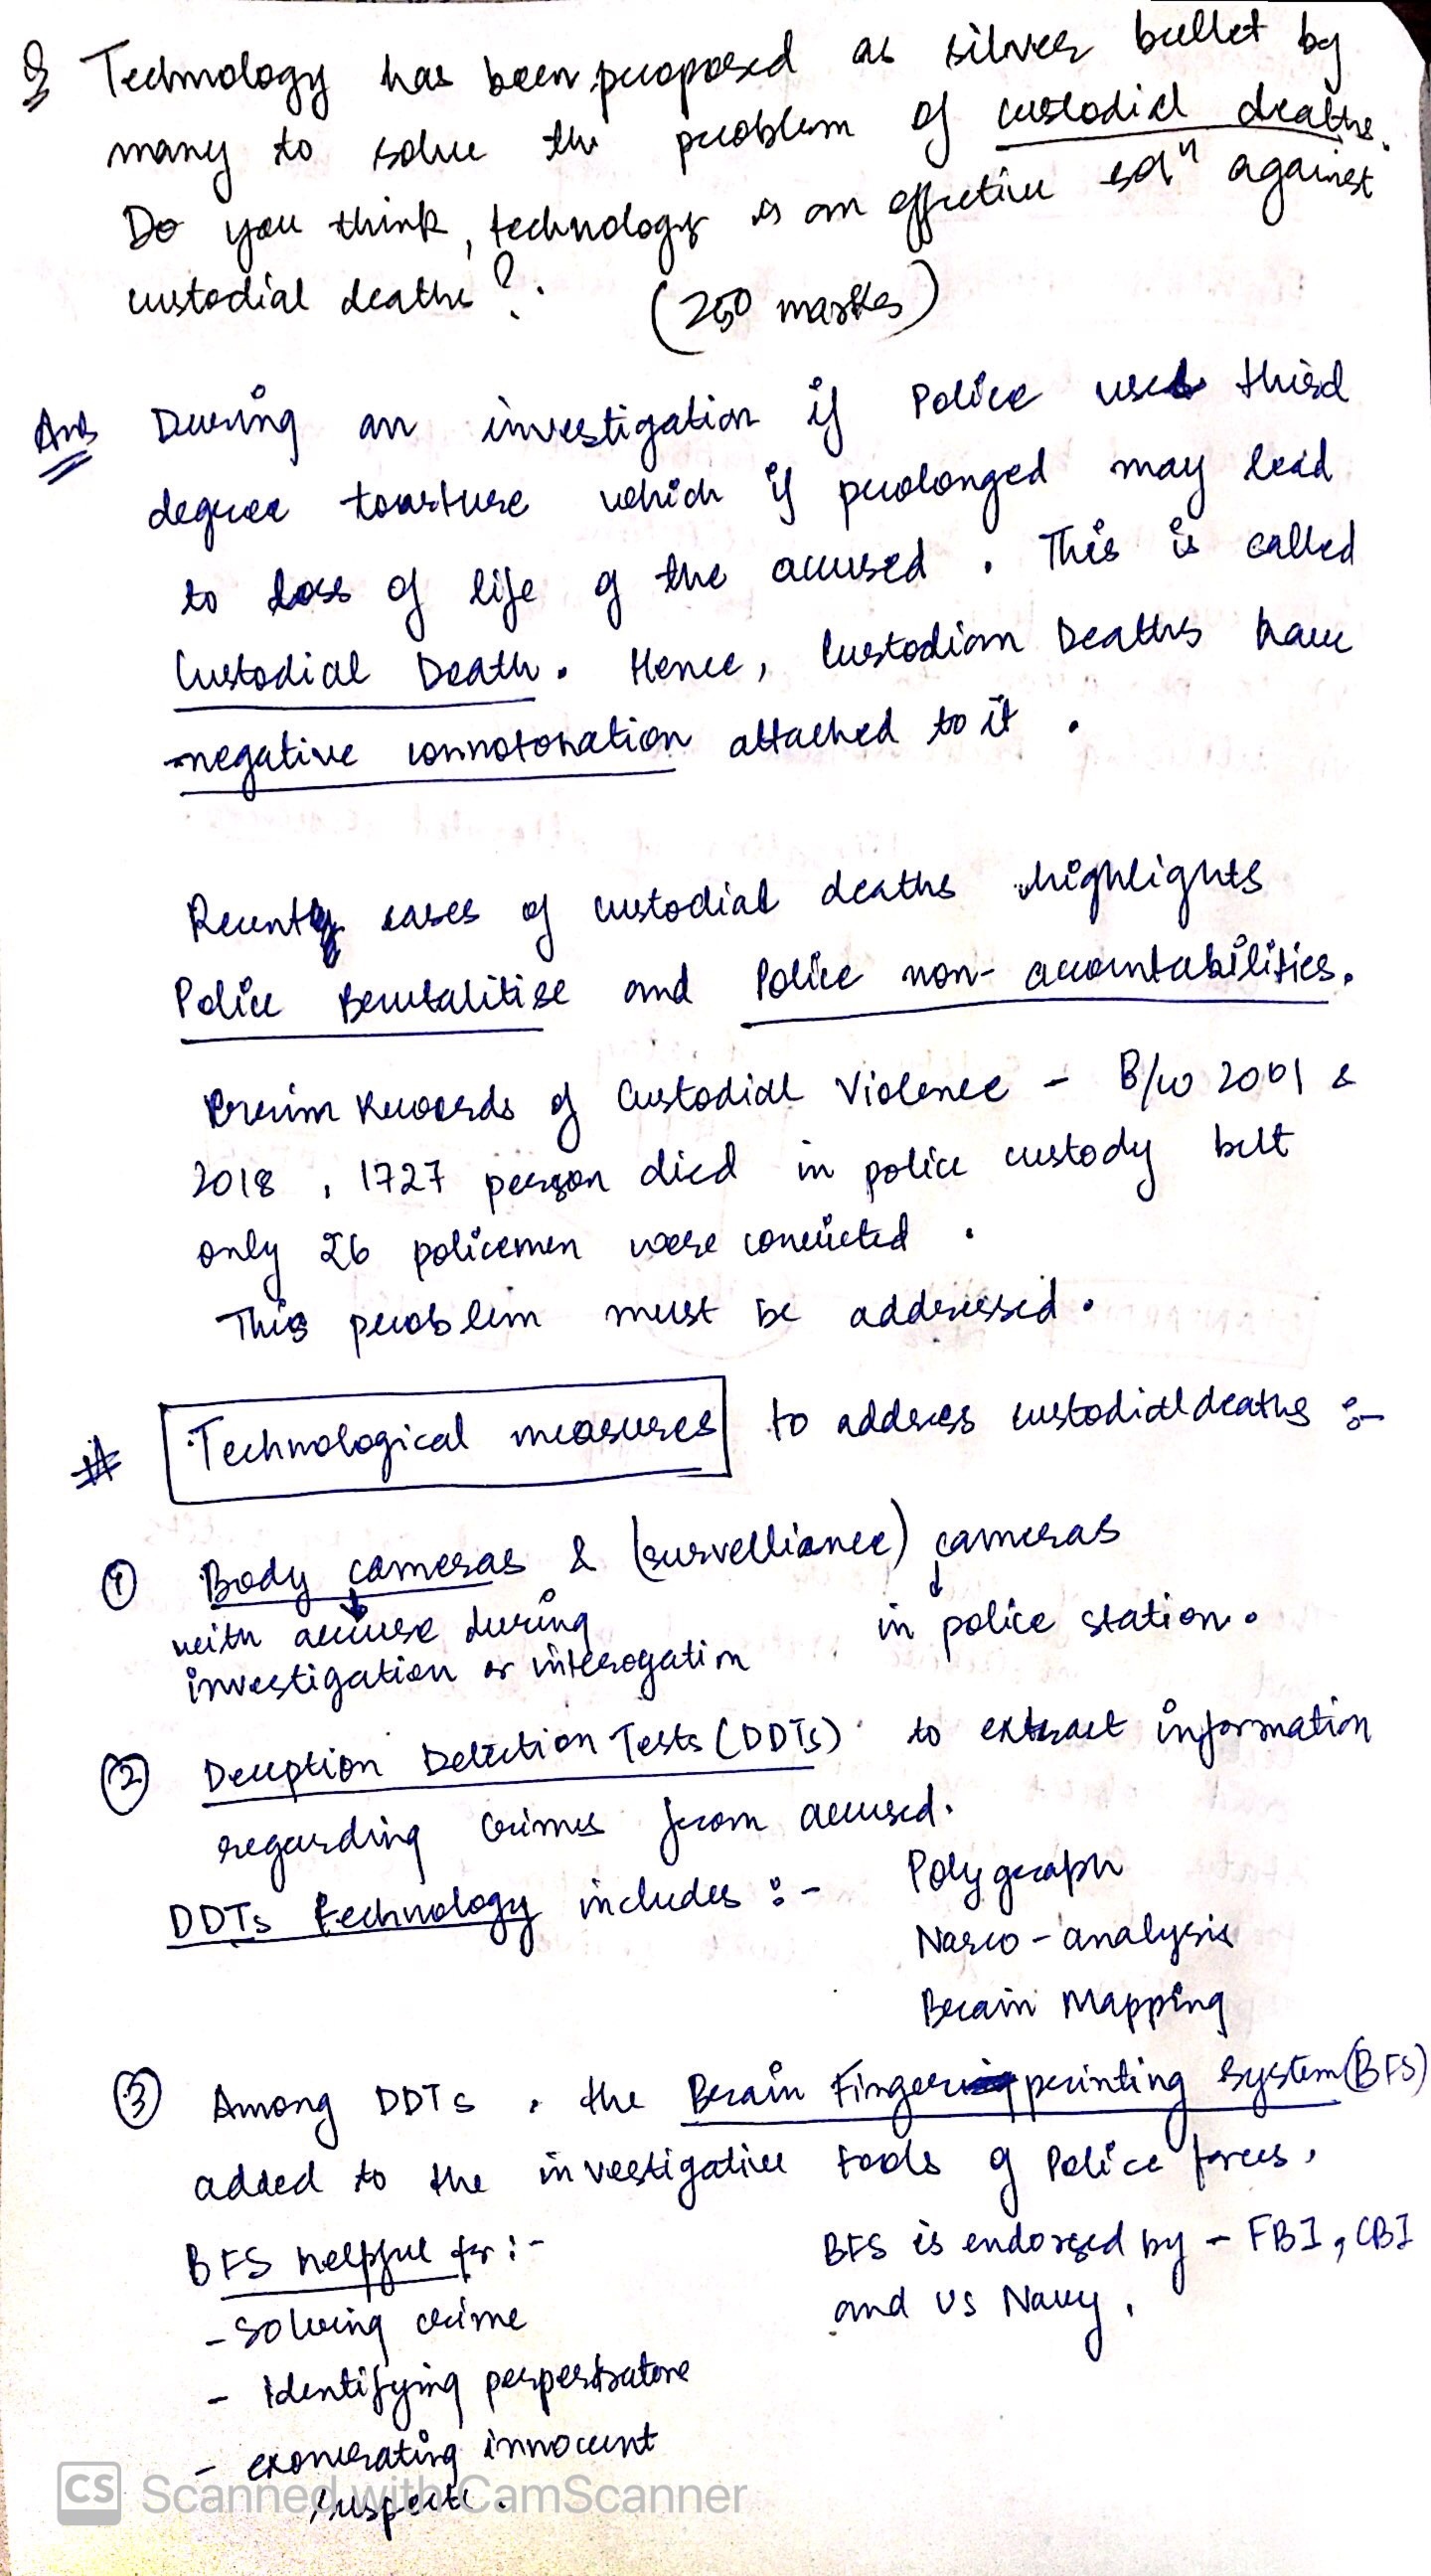 Q Technology has been proposed as silver bullet by
many to solve the problem of custodial deaths.
Do you think, technology is an effective solⁿ against
custodial deaths?. (250 marks)
Ans During an investigation if Police used third
degree torture which if prolonged may lead
to loss of life of the accused. This is called
Custodial Death. Hence, Custodian Deaths have
negative connotonation attached to it.
Recently cases of custodial deaths highlights
Police Brutalitise and Police non-accountabilities.
Crim Records of Custodial Violence - B/w 2001 &
2018, 1727 person died in police custody but
only 26 policemen were convicted.
This problem must be addressed.
# Technological measures to address custodial deaths :-
① Body cameras & (survelliance) cameras
↓ ↓
with accuse during in police station.
investigation or interrogation
② Deception Detection Tests (DDTs) to extract information
regarding crimes from accused.
DDTs technology includes :- Polygraph
Narco-analysis
Brain Mapping
③ Among DDTs, the Brain Fingerprinting System (BFS)
added to the investigative tools of Police forces.
BFS helpful for :- BFS is endorsed by - FBI, CBI
- Solving crime and US Navy.
- Identifying perpertrators
- exonerating innocent
suspects.
CS Scanned with CamScanner